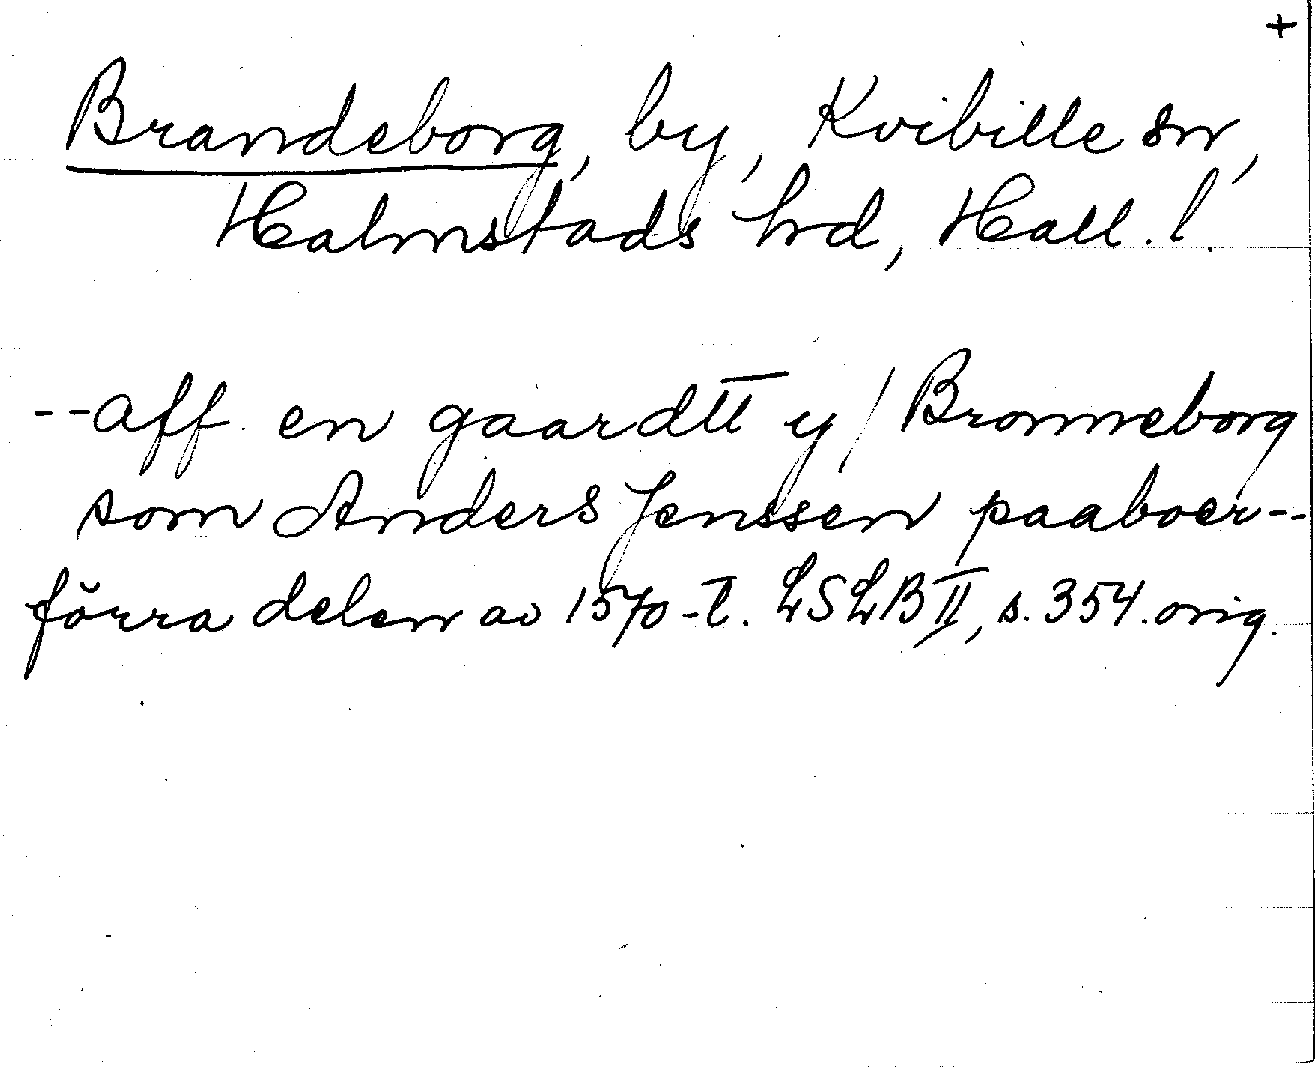 +
Brandeborg, by, Kvibille sn,
Halmstads hd, Hall. l.
--aff en gaardtt y/ Bronneborg
som Anders Jenssen paaboer--
förra delen av 1570-t. LSLB II, s. 354. orig.